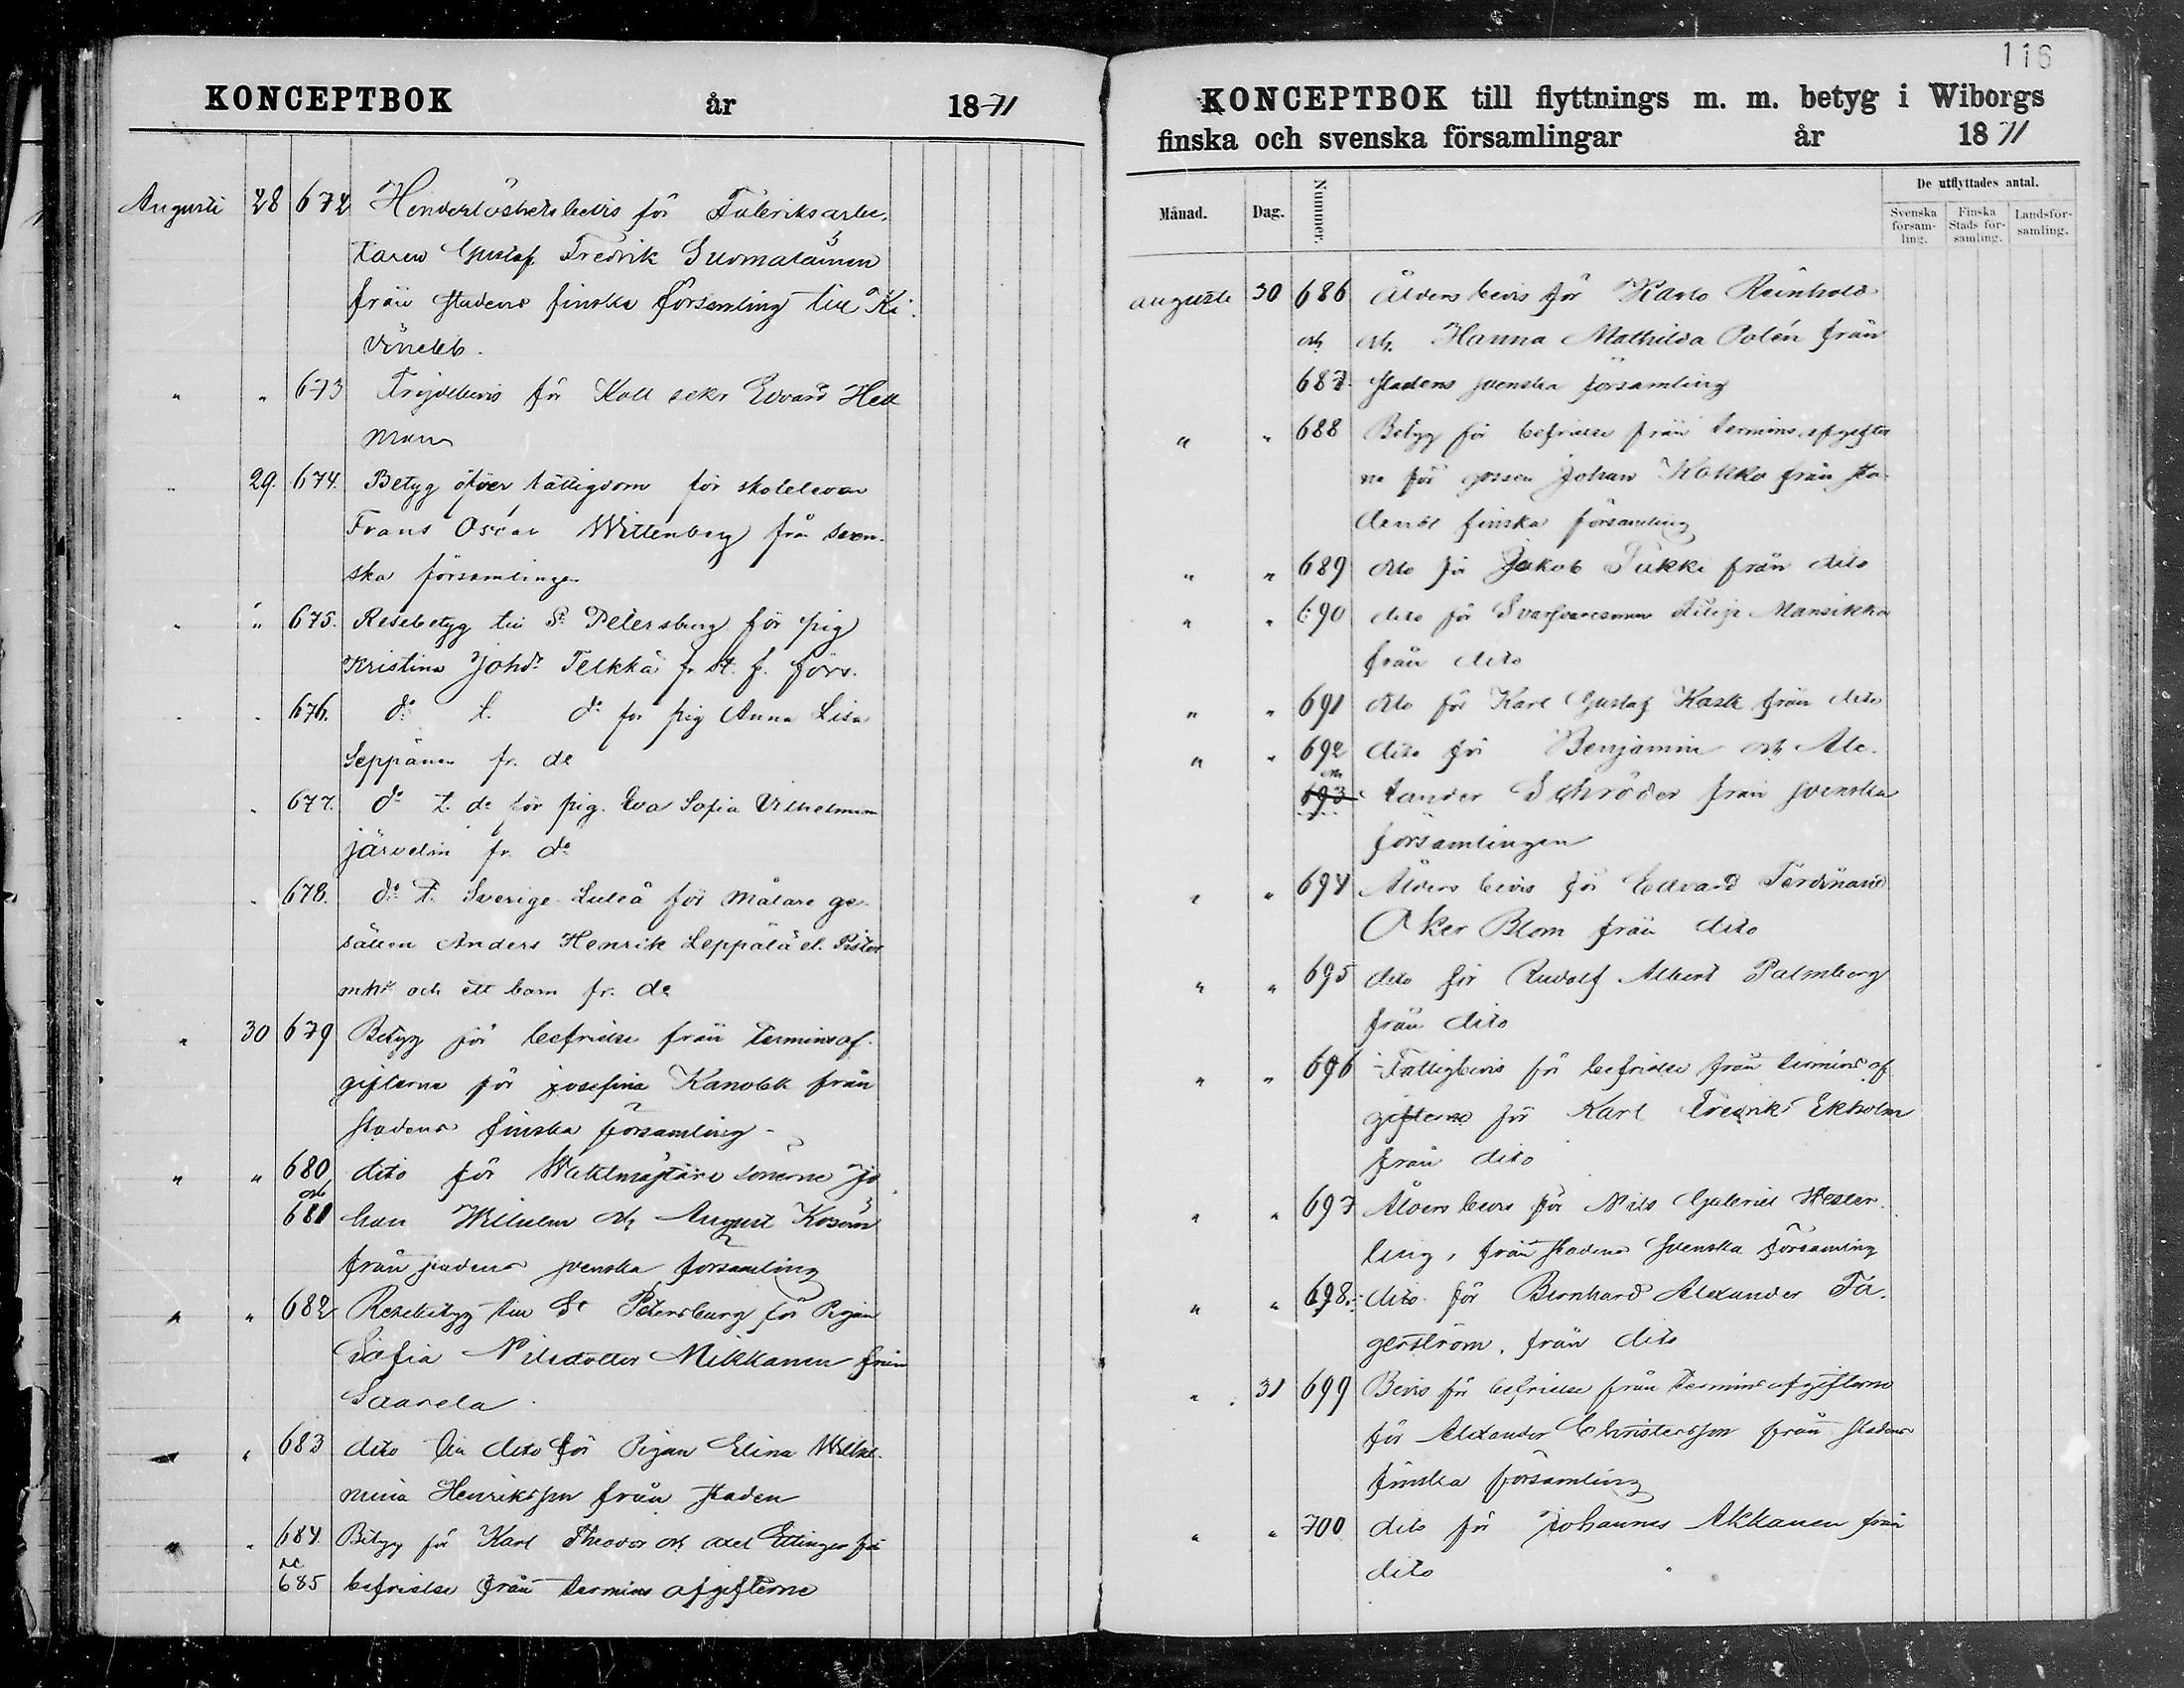 KONCEPTBOK år 1871
Augusti 28 672 Henderlöshetsbevis för Fabriksarbe-
taren Gustaf Fredrik Suomalainen
från stadens finska församling till Ki-
vinebb.
" " 673 Frejdebevis för Koll sekr Edvard Hell
man
" 29. 674. Betyg öfver fattigdom för skoleleven
Frans Oscar Wittenberg frå sven-
ska församlingen
" " 675. Resebetyg till St. Petersburg för pig
Kristina Johdr Telkkä fr. St. f. förs.
" " 676. do t. do för pig Anna Lisa
Seppänen fr. do
" 677. do t. do för pig. Eva Sofia Vilhelmina
Järvelin fr. do
" 678. do t. Sverige Luleå för målare ge-
sällen Anders Henrik Leppälä el. Pister
m h: och ett barn fr. do
" 30 679 Betyg för befrielse från terminsaf-
gifterna för Josefina Kanolek från
stadens finska församling
" " 680 dito för Waktmästare sönerne Jo-
och
681 han Wilhelm och August Kosonen
från stadens svenska församling
" " 682 Resebetyg till St Petersburg för Pigan
Sofia Nilsdotter Mikkanen från
Saarela
" " 683 dito till dito för Pigan Elina Wilhel-
mina Henriksson från staden
" " 684. Betyg för Karl Theodor och Axel Ettinger för
685 befrielse från termins afgifterne
116
KONCEPTBOK till flyttnings m. m. betyg i Wiborgs
finska och svenska församlingar år 1871
Månad. Dag. Nummer. De utflyttades antal.
Svenska församling. Finska Stads församling. Landsförsamling.
Augusti 30 686 Åldersbevis för Karlo Reinhold
och och Hanna Mathilda Polén från
687. stadens svenska församling
" " 688 Betyg för befrielse från termins afgifter
na för gossen Johan Kokko från sta-
dens finska församling
" " 689 dito för Jakob Tukki från dito
" " 690 dito för Svarfvaresonen Filip Mansikka
från dito
" " 691 dito för Karl Gustaf Kask från dito
" " 692 dito för Benjamin och Ale-
och
693 xander Schröder från svenska
församlingen
" " 694 Åldersbevis för Edvard Ferdinand
Åker Blom från dito
" " 695 dito för Rudolf Albert Palmberg
från dito
" " 696 Fattigbevis för befrielse från termins af
gifterna för Karl Fredrik Ekholm
från dito
" " 697 Åldersbevis för Nils Gabriel Wester-
ling, från stadens svenska församling
" " 698. dito för Bernhard Alexander Fa-
gerström, från dito
" 31 699 Bevis för befrielse från terminsafgifterne
för Alexander Christersson från stadens
finska församling
" " 700 dito för Johannes Akkanen från
dito